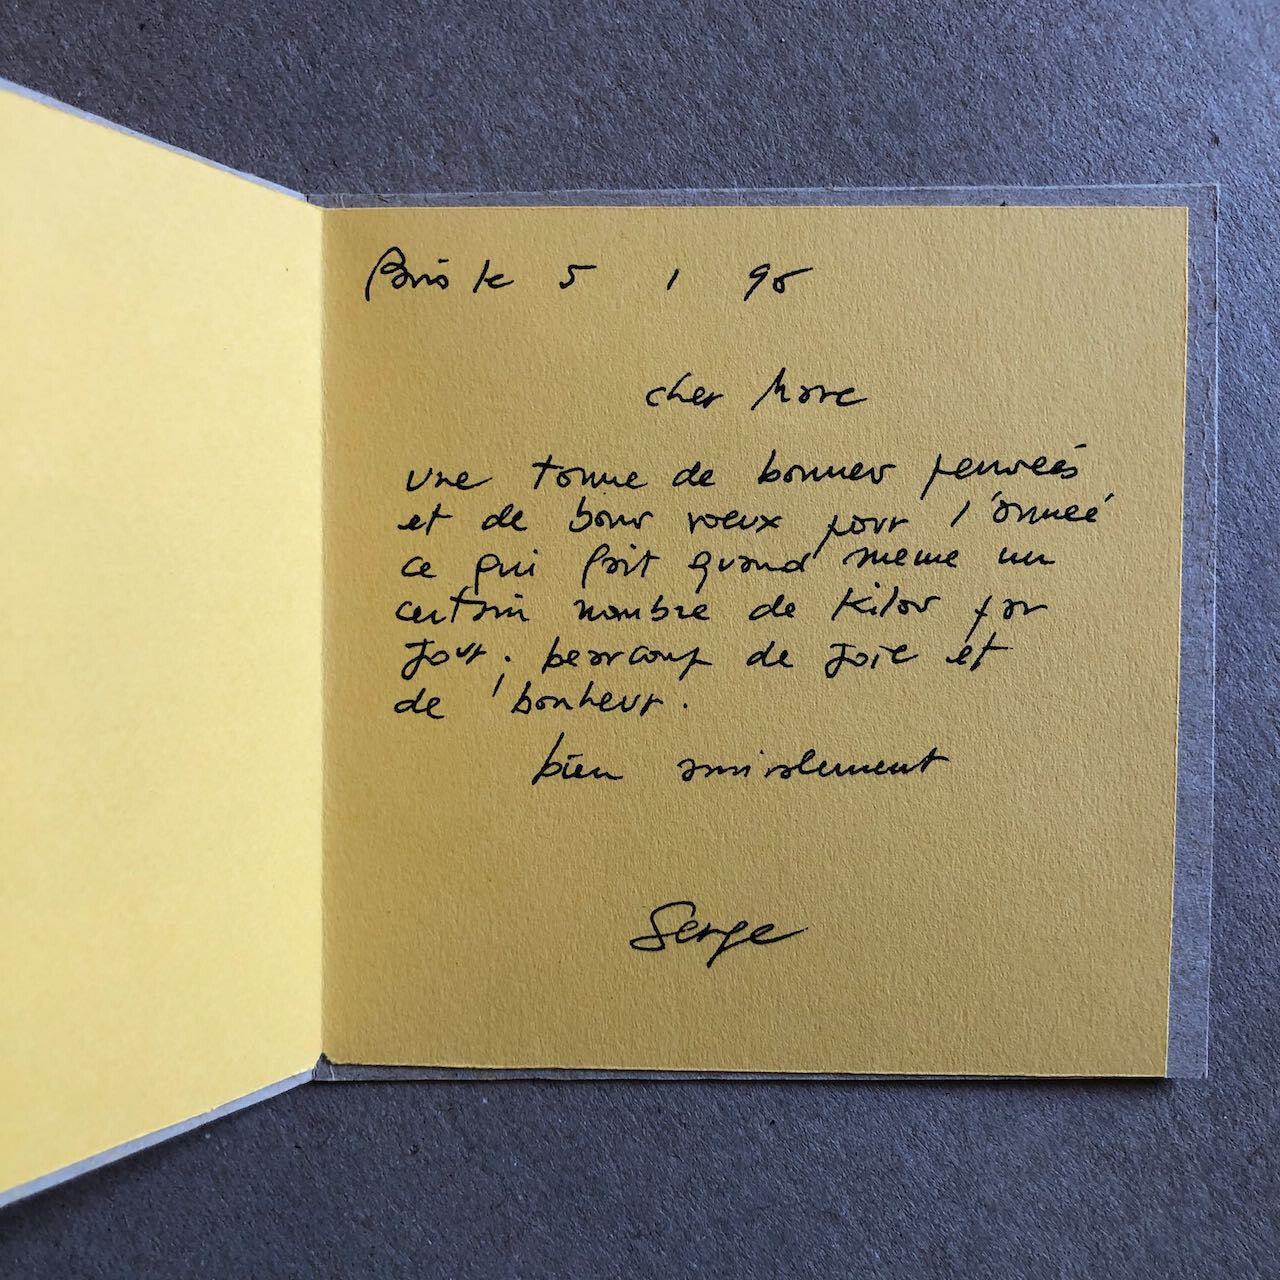 Paris le 5 1 96
cher Marc
une tonne de bonnes pensées
et de bons voeux pour l'année
ce qui fait quand meme un
certain nombre de kilos par
jour. beaucoup de joie et
de bonheur.
bien amicalement
Serge